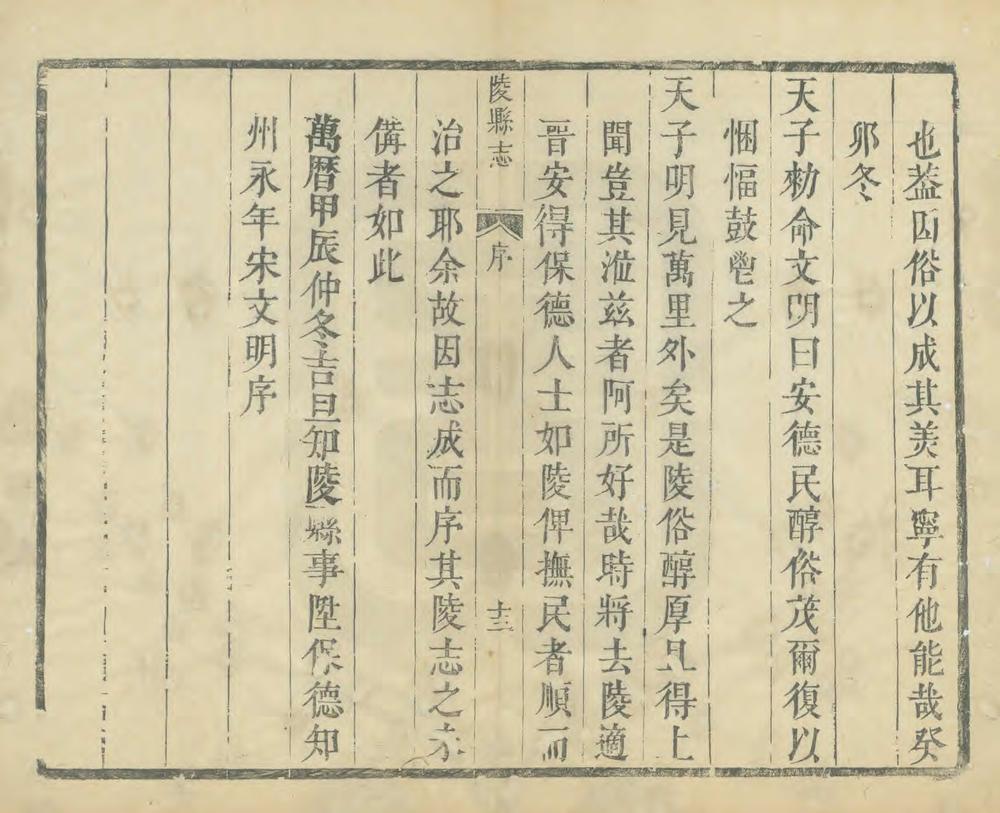 也葢因俗以成其美耳寧有他能哉癸
卯冬
天子勑命文明曰安德民醇俗茂爾復以
悃愊鼓鬯之
天子明見萬里外矣是陵俗醇厚且得上
聞豈其涖兹者阿所好哉時將去陵適
晋安得保德人士如陵俾撫民者順而
陵縣志
序
十三
治之耶余故因志成而序其陵志之未
備者如此
萬曆甲辰仲冬吉旦知陵縣事陞保德知
州永年宋文明序